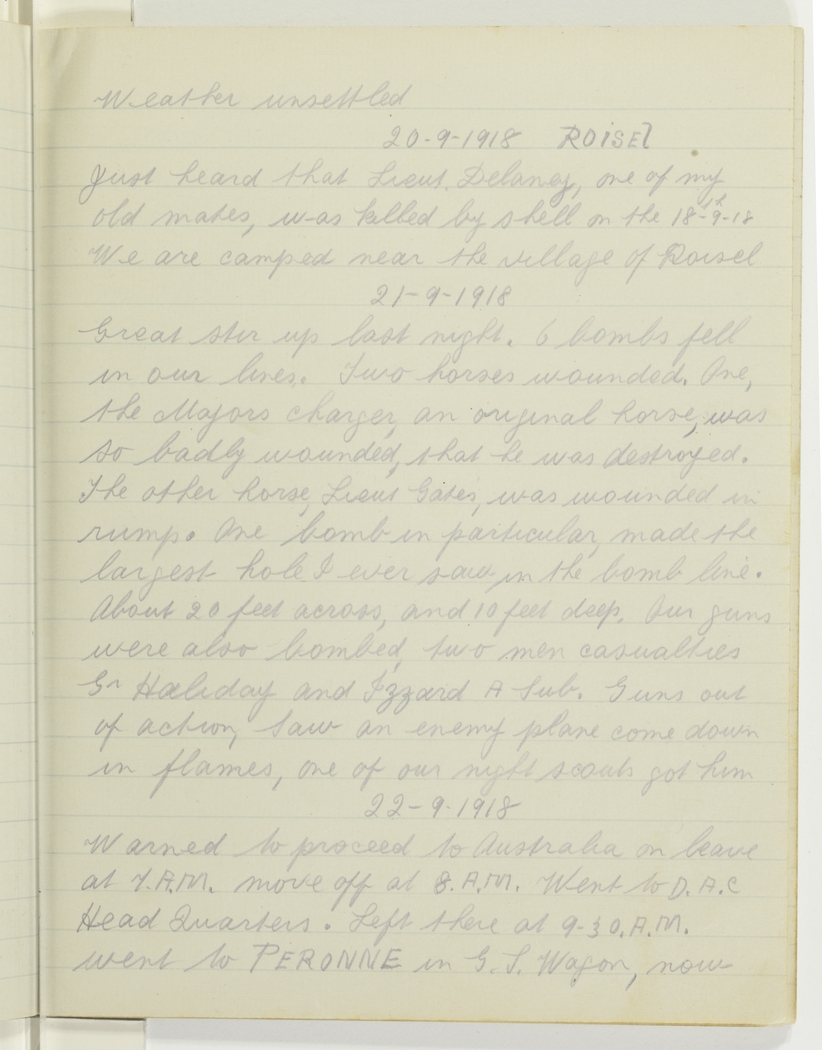 Weather unsettled
20-9-1918 ROISEl
Just heard that Lieut. Delaney, one of my
old mates, was killed by shell on the 18th-9-18
We are camped near the village of Roisel
21-9-1918
Great stir up last night. 6 bombs fell
in our lines. Two horses wounded. One,
the Majors charger, an original horse, was
so badly wounded, that he was destroyed.
The other horse, Lieut Gates, was wounded in
rump. One bomb in particular, made the
largest hole I ever saw in the bomb line.
About 20 feet across, and 10 feet deep. Our guns
were also bombed, two men casualties
Gr Haliday and Izzard A Sub. Guns out
of action, Saw an enemy plane come down
in flames, one of our night scouts got him
22-9-1918
Warned to proceed to Australia on leave
at 7.A.M. move off at 8.A.M. Went to D.A.C
Head Quarters. Left there at 9-30.A.M.
went to PERONNE in G.S. Wagon, now